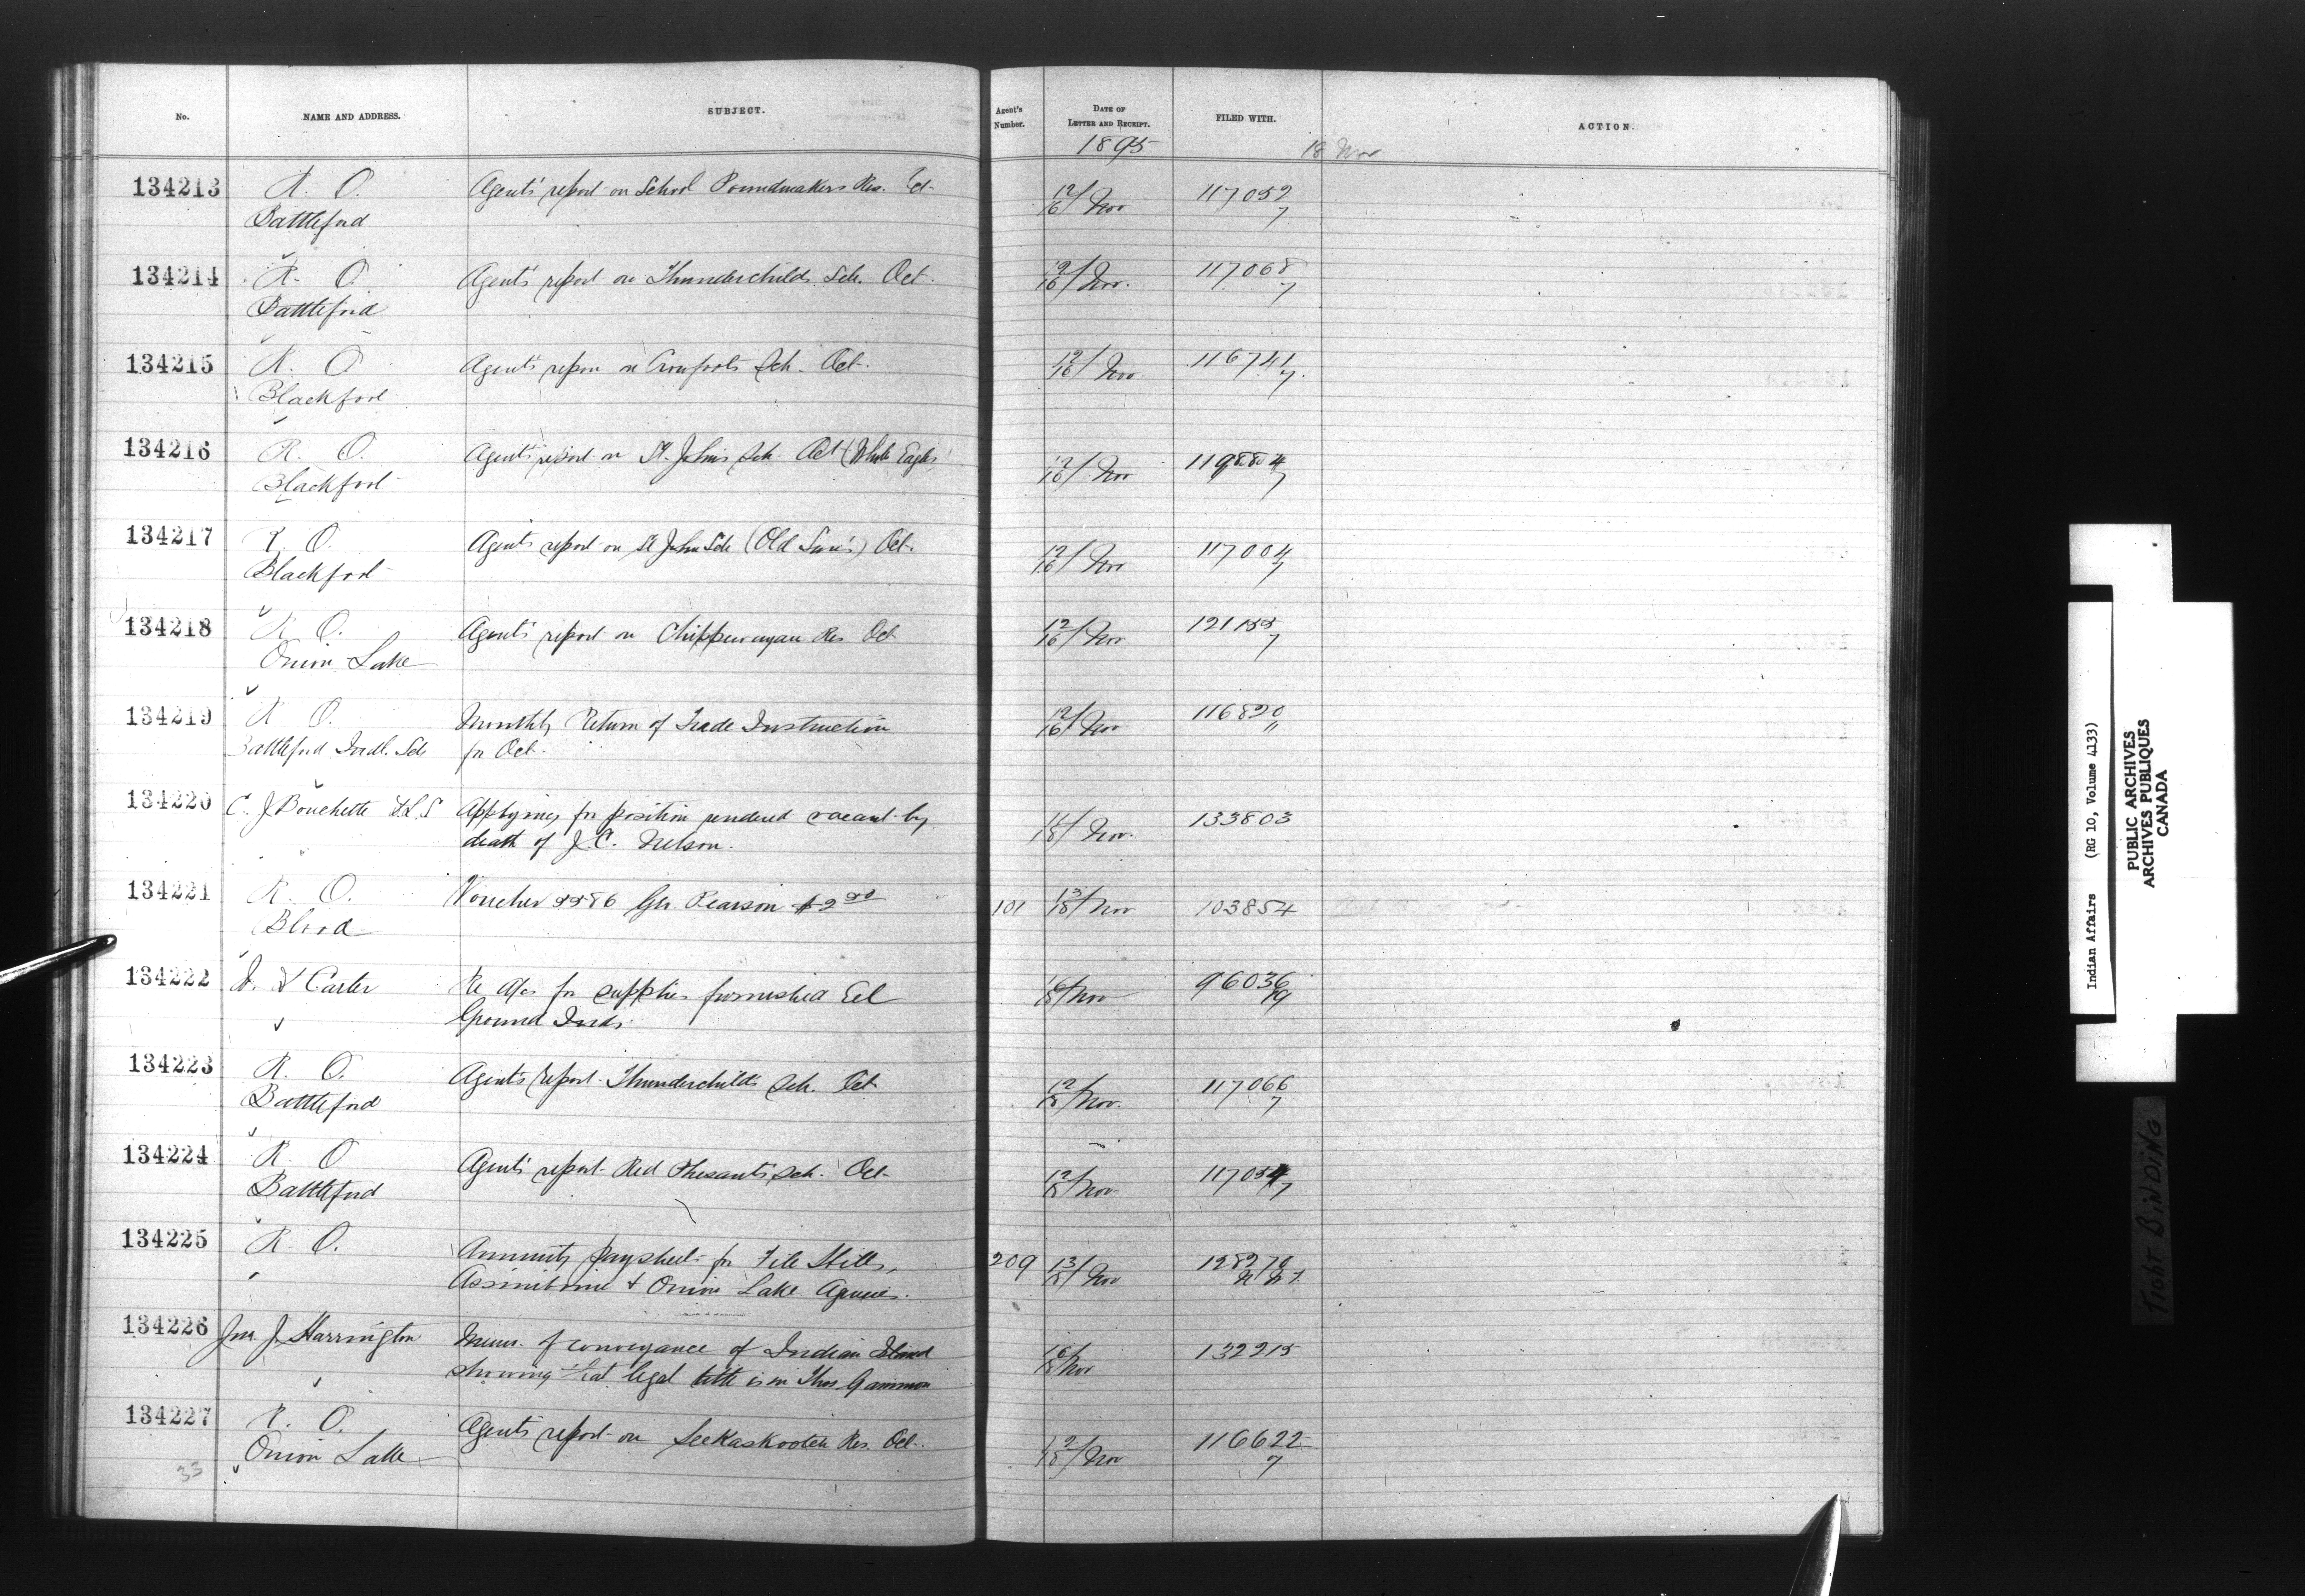 No.
NAME AND ADDRESS.
SUBJECT.
Agent's Number.
DATE OF LETTER AND RECEIPT.
FILED WITH.
ACTION.
1895
18 Nov
134213 R. O. Agents' report on School Poundmakers Res. Oct. 12/16 Nov 117052
Battleford 7
134214 R. O. Agent's report on Thunderchilds Sch. Oct. 12/16 Nov. 117068
Battleford 7
134215 R. O. Agents report on Crowfoots Sch. Oct. 12/16 Nov 116741
Blackfoot 7
134216 R. O. Agents report on St. John's Sch. Oct (White Eagles) 12/16 Nov 119884
Blackfoot 7
134217 R. O. Agents report on St John Sch (Old Sun's) Oct. 12/16 Nov 117004
Blackfoot 7
134218 R. O. Agent's report on Chippewayan Res Oct 12/16 Nov 121155
Onion Lake 7
134219 R. O. Monthly Return of Trade Instruction 12/16 Nov 116820
Battleford Indl. Sch for Oct. "
134220 C. J Bouchette DLS Applying for position rendered vacant by 11/18 Nov. 133803
" death of J. C. Nelson.
134221 R. O. Voucher Geo. Pearson $2 00 101 13/18 Nov 103854
Blood
134222 Carter Re a/cs for supplies furnished Eel 16/18 Nov 96036
Ground Inds. 19
134223 R. O. Agent's report Thunderchilds Sch. Oct 12/18 Nov. 117066
Battleford 7
134224 R. O Agents' report Red Phesants Sch. Oct 12/18 Nov 117054
Battleford 7
134225 R. O. Annuity paysheet for File Hills, 209 13/18 Nov 128270
" Assiniboine & Onion Lake Agencies.
134226 Jno. J. Harrington Mem. of conveyance of Indian Island 16/18 Nov 132215
showing that legal title is in Thos Gammon
134227 R. O. Agents' report on Seekaskootch Res. Oct. 12/18 Nov 116622
Onion Lake 7
33
Indian Affairs (RG 10, Volume 4133)
PUBLIC ARCHIVES
ARCHIVES PUBLIQUES
CANADA
TIGHT BINDING